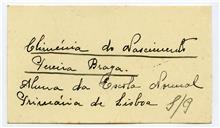 Climénia do Nascimento
Pereira Braga.
Aluna da Escola Normal
Primária de Lisboa 8/9